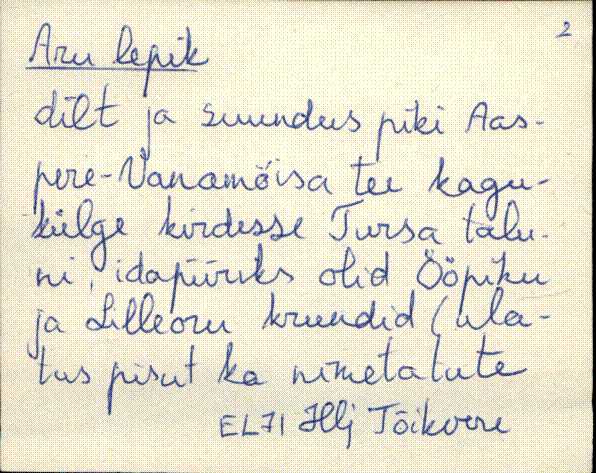 2
Aru lepik
dilt ja suundus piki Aas-
pere-Vanamõisa tee kagu-
külge kirdesse Tursa talu-
ni, idapiiriks olid Ööpiku
ja Lilleoru krundid (ula-
tus pisut ka nimetatute
Hlj Tõikvere